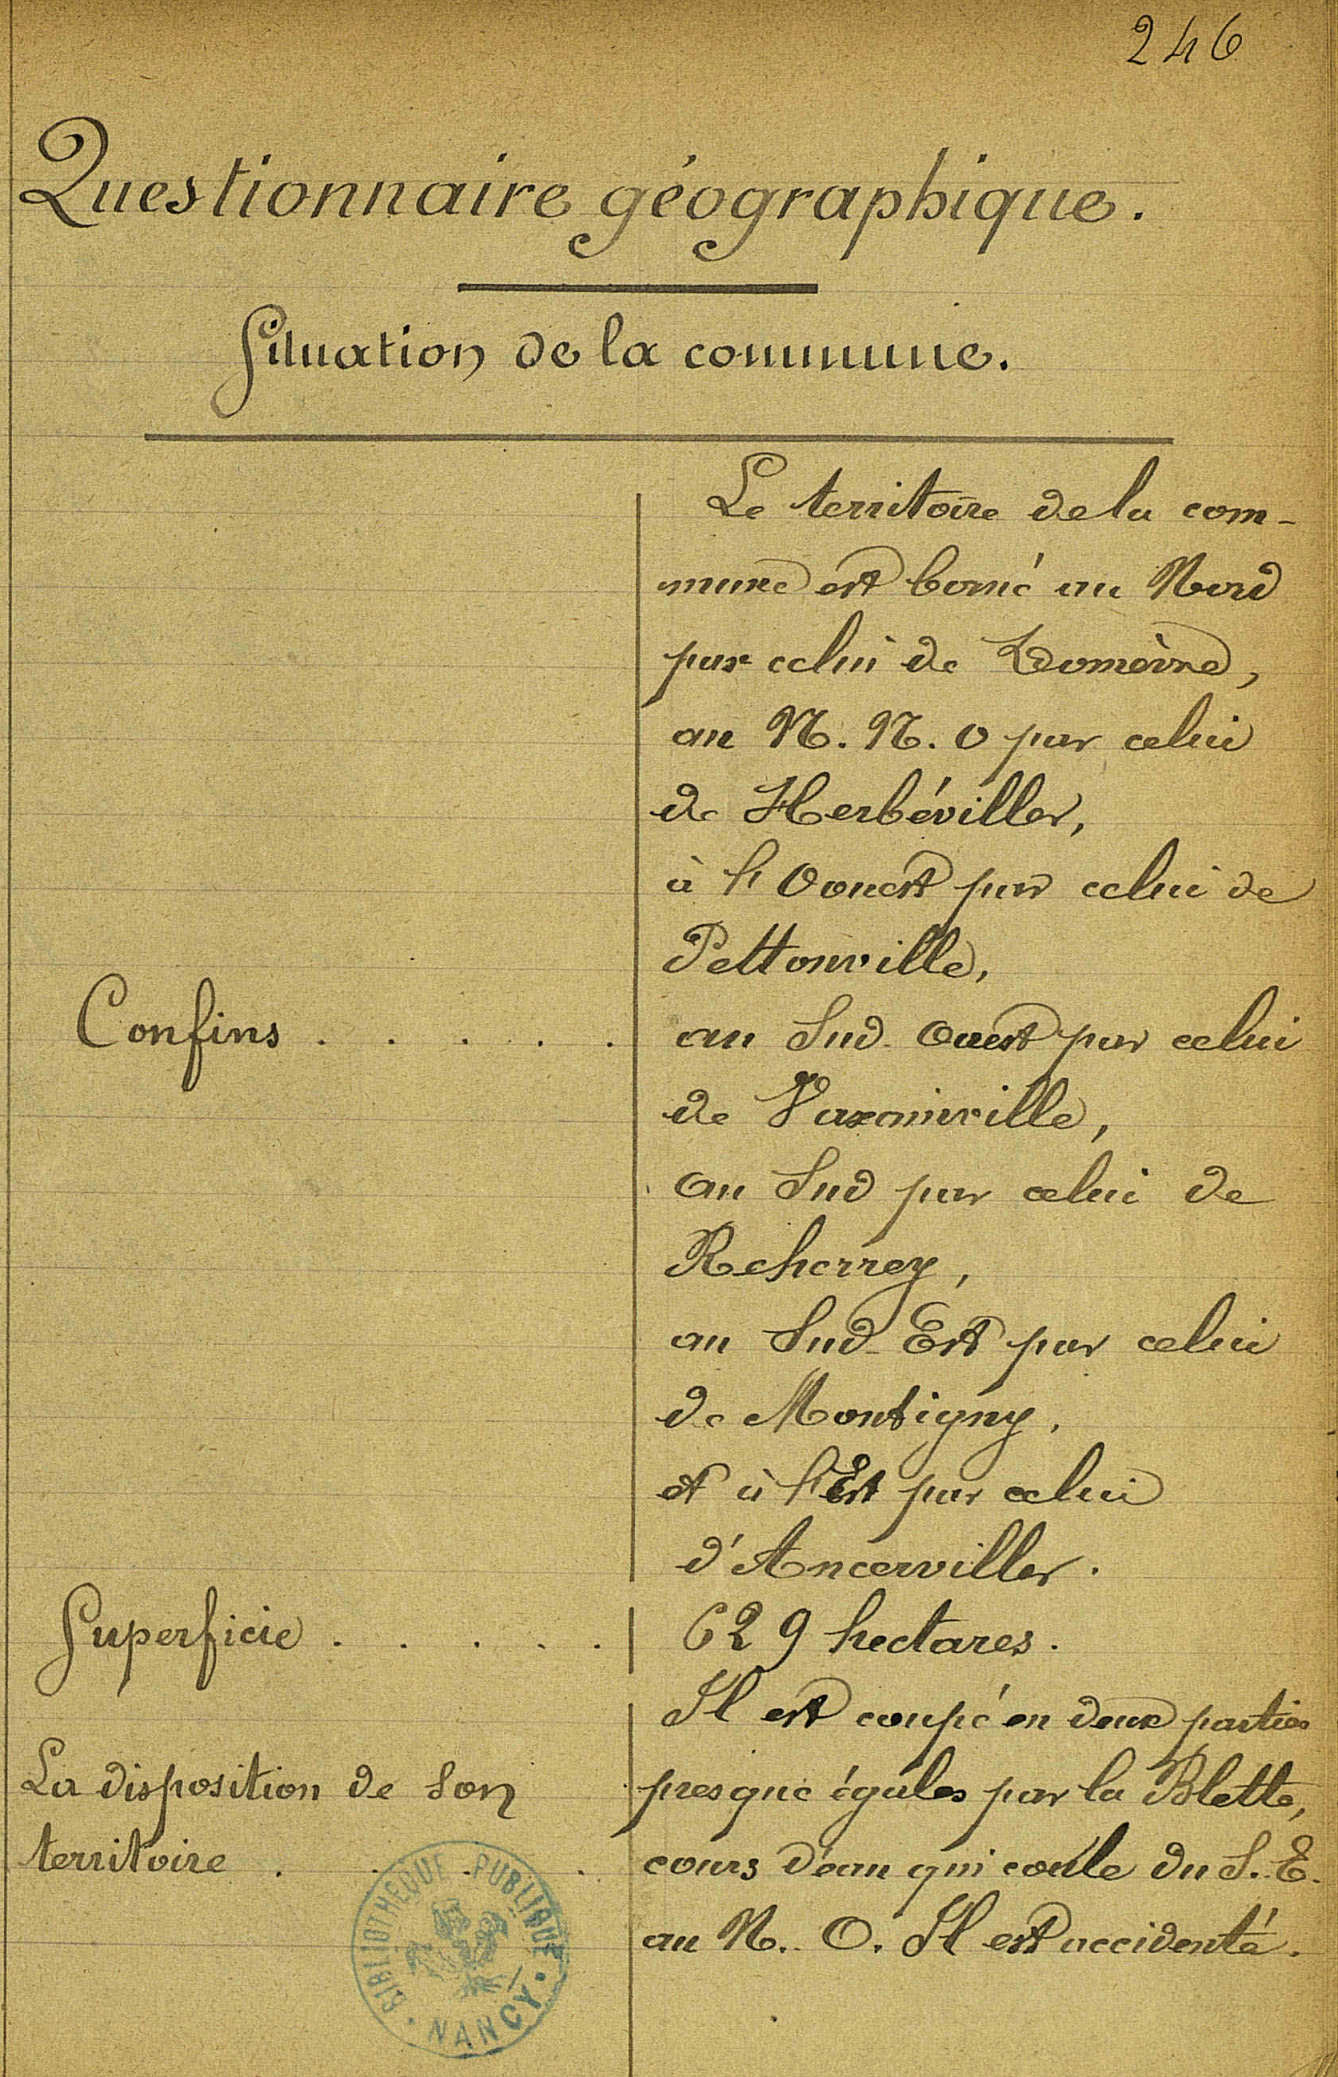 246
Questionnaire géographique.
Situation de la commune.
Le territoire de la com-
mune est borné au Nord
par celui de Domèvre,
au N. N. O par celui
de Herbéviller,
à l'Ouest par celui de
Pettonville,
Confins . . . . .
au Sud-Ouest par celui
de Vaxainville,
au Sud par celui de
Reherrey,
au Sud-Est par celui
de Montigny,
et à l'Est par celui
d'Ancerviller.
Superficie . . . . .
629 hectares.
Il est coupé en deux parties
La disposition de son
presque égales par la Blette,
territoire . . . . .
cours d'eau qui coule du S. E.
au N. O. Il est accidenté.
BIBLIOTHEQUE PUBLIQUE
NANCY